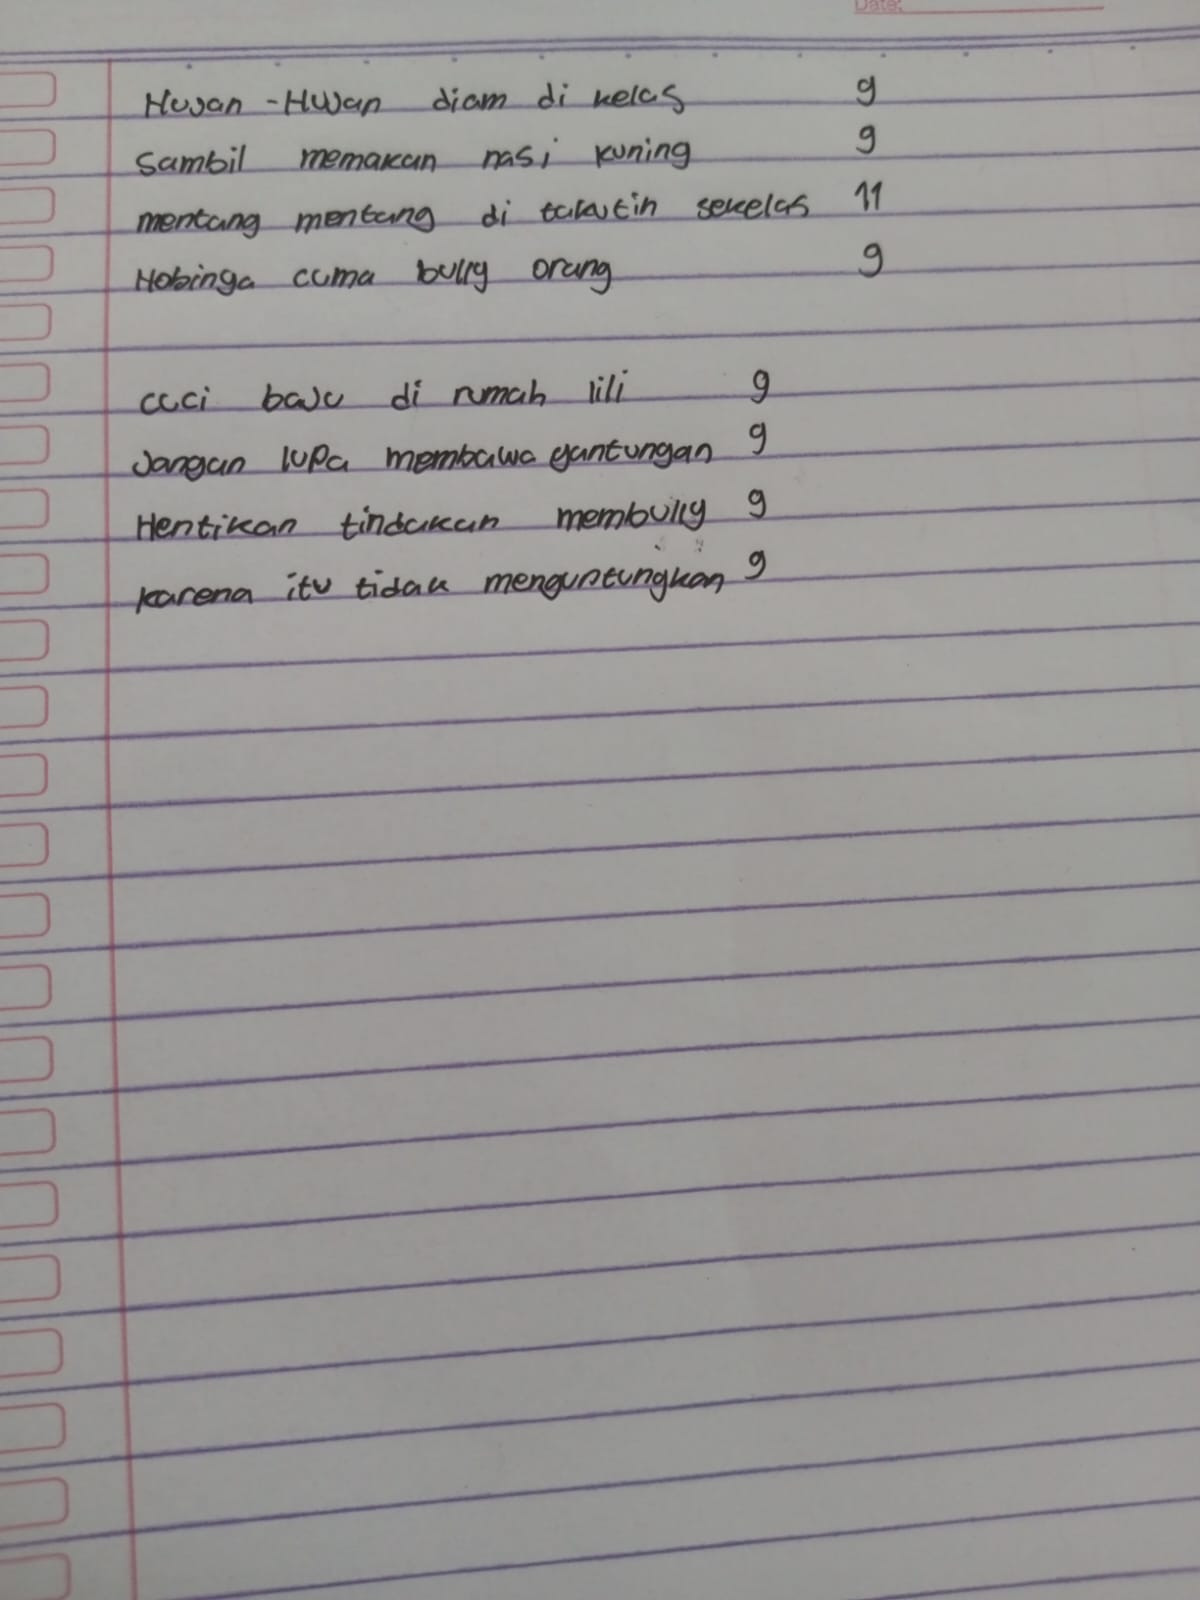 Date:
Hujan - Hujan diam di kelas 9
Sambil memakan nasi kuning 9
mentang mentang di takutin sekelas 11
Hobinga cuma bully orang 9
cuci baju di rumah lili 9
Jangan lupa membawa gantungan 9
Hentikan tindakan membully 9
karena itu tidak menguntungkan 9